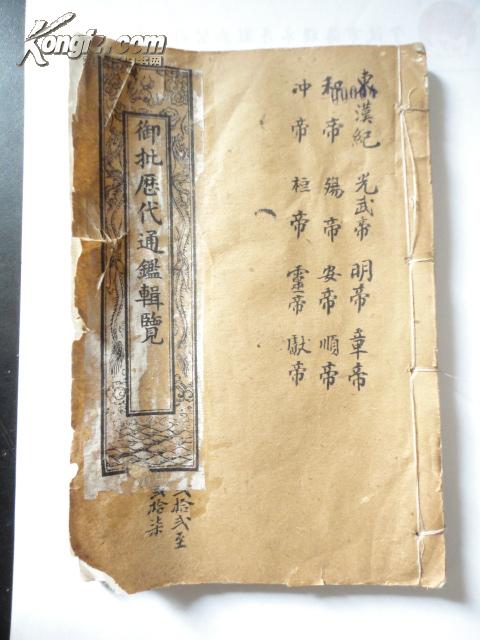 Kongfz.com
東漢紀 光武帝 明帝 章帝
和帝 殤帝 安帝 順帝
冲帝 桓帝 靈帝 獻帝
御批歷代通鑑輯覽
拾弍至
弍拾柒